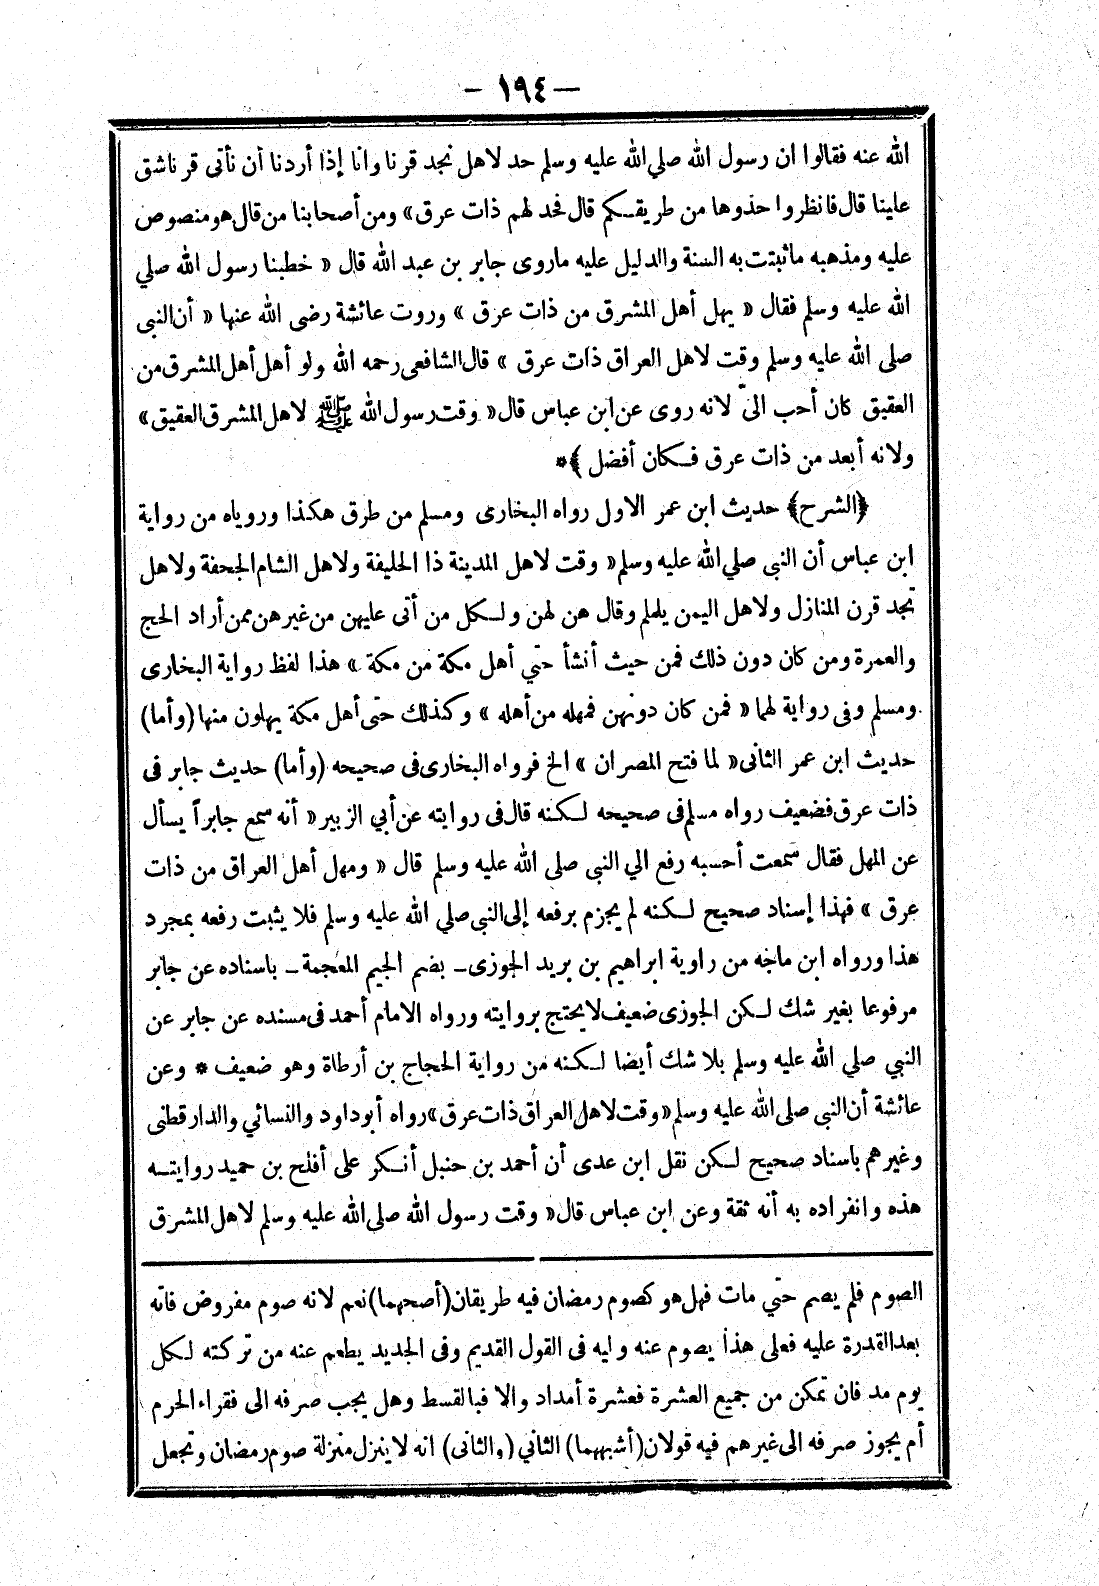 — ١٩٤ —
الله عنه فقالوا ان رسول الله صلي الله عليه وسلم حد لاهل نجد قرنا وانا إذا أردنا أن نأتى قرنا شق
علينا قال فانظروا حذوها من طريقكم قال فحد لهم ذات عرق» ومن أصحابنا من قال هو منصوص
عليه ومذهبه ما ثبتت به السنة والدليل عليه ماروى جابر بن عبد الله قال « خطبنا رسول الله صلي
الله عليه وسلم فقال « يهل أهل المشرق من ذات عرق » وروت عائشة رضى الله عنها « أن النبى
صلى الله عليه وسلم وقت لاهل العراق ذات عرق » قال الشافعى رحمه الله ولو أهل أهل المشرق من
العقيق كان أحب الىّ لانه روى عن ابن عباس قال « وقت رسول الله ﷺ لاهل المشرق العقيق»
ولانه أبعد من ذات عرق فكان أفضل ﴾*
﴿الشرح﴾ حديث ابن عمر الاول رواه البخارى ومسلم من طرق هكذا وروياه من رواية
ابن عباس أن النبى صلي الله عليه وسلم « وقت لاهل المدينة ذا الحليفة ولاهل الشام الجحفة ولاهل
نجد قرن المنازل ولاهل اليمن يلملم وقال هن لهن ولكل من أتى عليهن من غيرهن ممن أراد الحج
والعمرة ومن كان دون ذلك فمن حيث أنشأ حتي أهل مكة من مكة » هذا لفظ رواية البخارى
ومسلم وفى رواية لهما « فمن كان دونهن فمهله من أهله » وكذلك حتى أهل مكة يهلون منها (وأما)
حديث ابن عمر الثانى « لما فتح المصران » الخ فرواه البخارى فى صحيحه (وأما) حديث جابر فى
ذات عرق فضعيف رواه مسلم فى صحيحه لكنه قال فى روايته عن أبي الزبير « أنه سمع جابراً يسأل
عن المهل فقال سمعت أحسبه رفع الي النبى صلى الله عليه وسلم قال « ومهل أهل العراق من ذات
عرق » فهذا إسناد صحيح لكنه لم يجزم برفعه إلى النبى صلي الله عليه وسلم فلا يثبت رفعه بمجرد
هذا ورواه ابن ماجه من راوية ابراهيم بن يريد الجوزى – بضم الجيم المعجمة – باسناده عن جابر
مرفوعا بغير شك لكن الجوزى ضعيف لا يحتج بروايته ورواه الامام أحمد فى مسنده عن جابر عن
النبي صلي الله عليه وسلم بلا شك أيضا لكنه من رواية الحجاج بن أرطاة وهو ضعيف * وعن
عائشة أن النبى صلى الله عليه وسلم «وقت لاهل العراق ذات عرق» رواه أبو داود والنسائي والدارقطنى
وغيرهم باسناد صحيح لكن نقل ابن عدى أن أحمد بن حنبل أنكر على أفلح بن حميد روايته
هذه وانفراده به أنه ثقة وعن ابن عباس قال « وقت رسول الله صلى الله عليه وسلم لاهل المشرق
الصوم فلم يصم حتي مات فهل هو كصوم رمضان فيه طريقان (أصحهما) نعم لانه صوم مفروض فاته
بعد القدرة عليه فعلى هذا يصوم عنه وليه فى القول القديم وفى الجديد يطعم عنه من تركته لكل
يوم مد فان تمكن من جميع العشرة فعشرة أمداد والا فبالقسط وهل يجب صرفه الى فقراء الحرم
أم يجوز صرفه الى غيرهم فيه قولان (أشبههما) الثاني (والثانى) انه لا ينزل منزلة صوم رمضان وتجعل